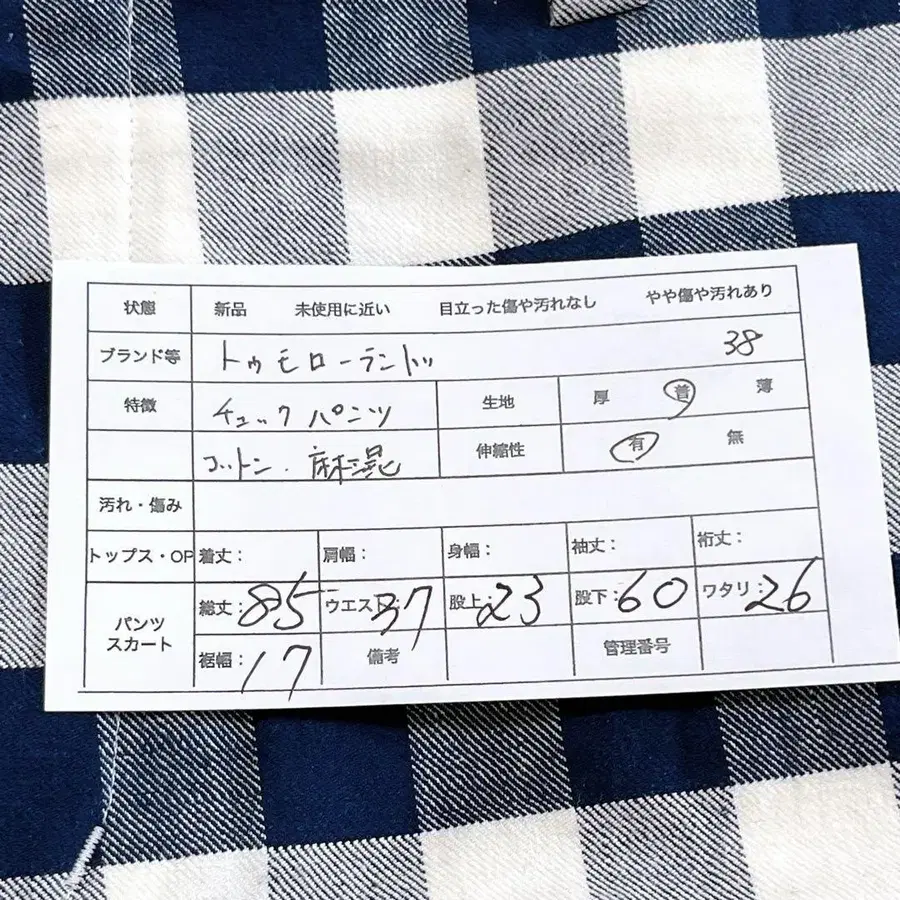 状態 新品 未使用に近い 目立った傷や汚れなし やや傷や汚れあり
ブランド等 トゥモローランド 38
特徴 チェック パンツ 生地 厚 普 薄
コットン. 麻混 伸縮性 有 無
汚れ・傷み
トップス・OP 着丈： 肩幅： 身幅： 袖丈： 裄丈：
パンツ スカート 総丈：85 ウエスト：37 股上：23 股下：60 ワタリ：26
裾幅：17 備考 管理番号